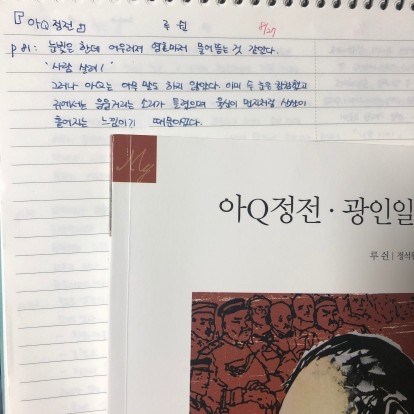 『아Q정전』 루쉰 8/27
p81: 눈빛은 한데 어우러져 영혼마저 물어뜯는 것 같았다.
'사람 살려!'
그러나 아Q는 아무 말도 하지 않았다. 이미 두 눈은 캄캄했고
귀에서는 웅웅거리는 소리가 들렸으며 온몸이 먼지처럼 산산이
흩어지는 느낌이기 때문이었다.
My
아Q정전·광인일
루쉰 | 정석원